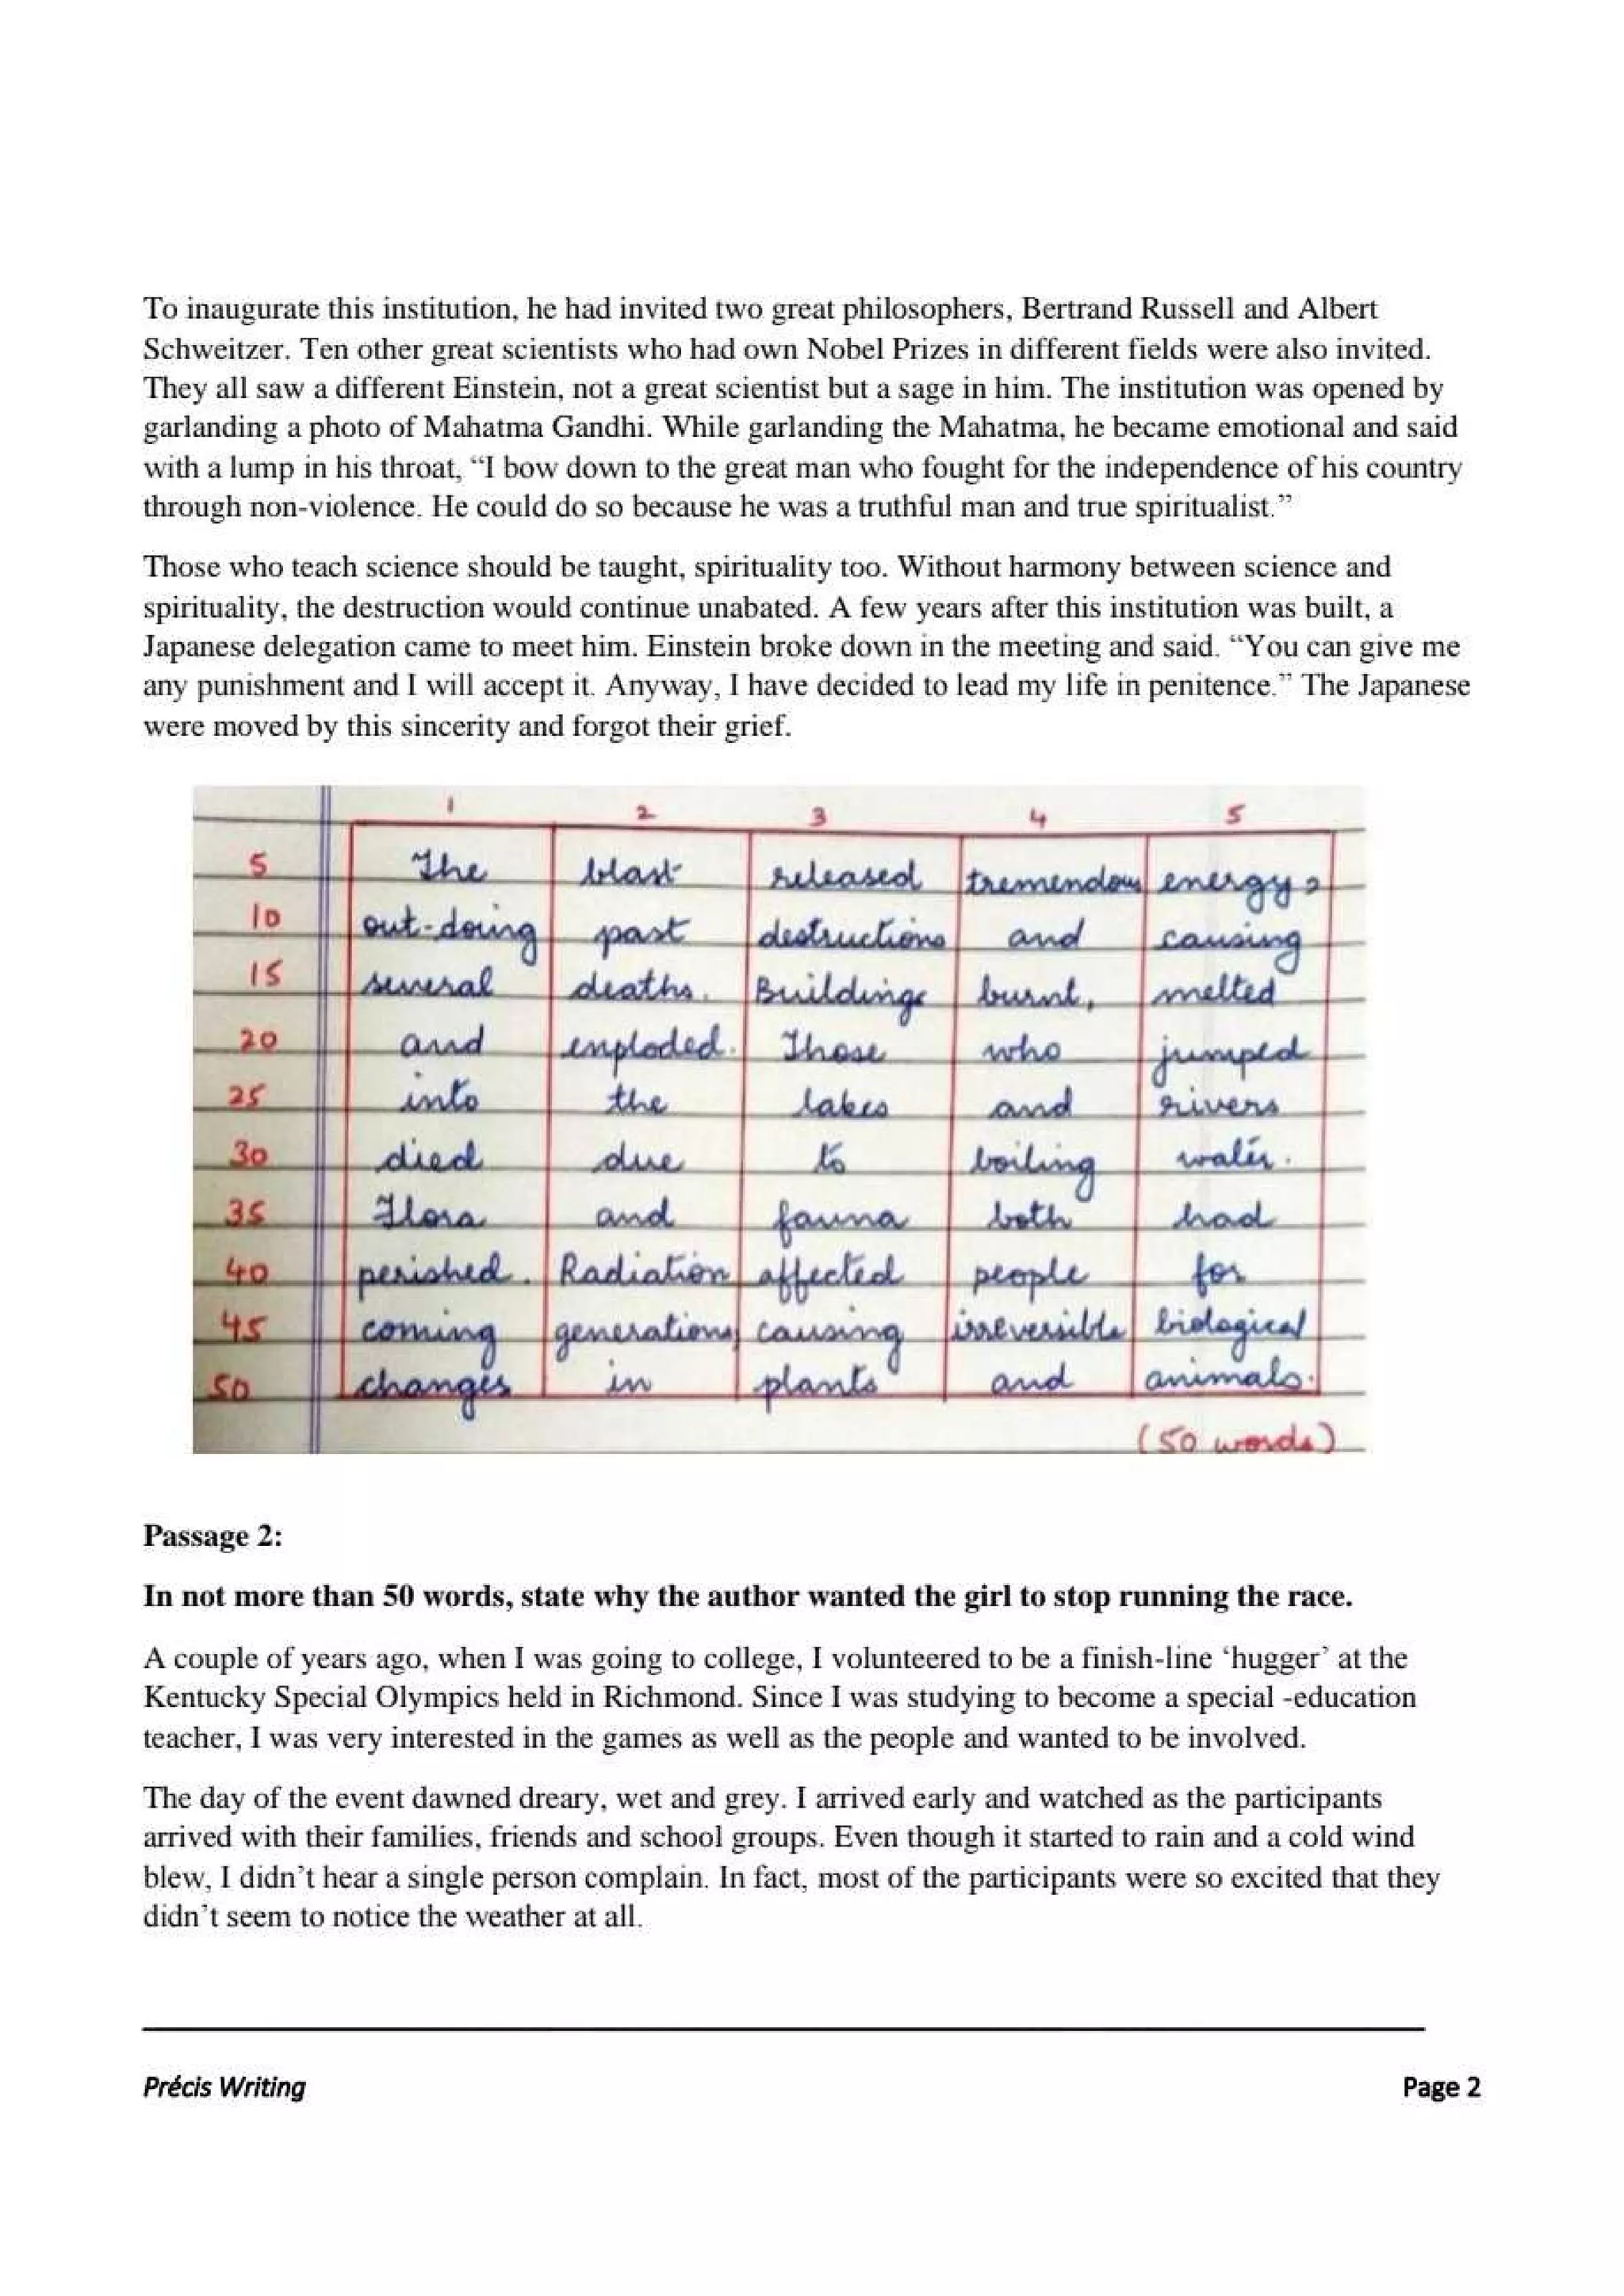 To inaugurate this institution, he had invited two great philosophers, Bertrand Russell and Albert
Schweitzer. Ten other great scientists who had own Nobel Prizes in different fields were also invited.
They all saw a different Einstein, not a great scientist but a sage in him. The institution was opened by
garlanding a photo of Mahatma Gandhi. While garlanding the Mahatma, he became emotional and said
with a lump in his throat, “I bow down to the great man who fought for the independence of his country
through non-violence. He could do so because he was a truthful man and true spiritualist.”
Those who teach science should be taught, spirituality too. Without harmony between science and
spirituality, the destruction would continue unabated. A few years after this institution was built, a
Japanese delegation came to meet him. Einstein broke down in the meeting and said. “You can give me
any punishment and I will accept it. Anyway, I have decided to lead my life in penitence.” The Japanese
were moved by this sincerity and forgot their grief.
1 2 3 4 5
5 The blast released tremendous energy,
10 out-doing past destructions and causing
15 several deaths. Buildings burnt, melted
20 and exploded. Those who jumped
25 into the lakes and rivers
30 died due to boiling water.
35 Flora and fauna both had
40 perished. Radiation affected people for
45 coming generations, causing irreversible biological
50 changes in plants and animals.
(50 words)
Passage 2:
In not more than 50 words, state why the author wanted the girl to stop running the race.
A couple of years ago, when I was going to college, I volunteered to be a finish-line ‘hugger’ at the
Kentucky Special Olympics held in Richmond. Since I was studying to become a special -education
teacher, I was very interested in the games as well as the people and wanted to be involved.
The day of the event dawned dreary, wet and grey. I arrived early and watched as the participants
arrived with their families, friends and school groups. Even though it started to rain and a cold wind
blew, I didn’t hear a single person complain. In fact, most of the participants were so excited that they
didn’t seem to notice the weather at all.
Précis Writing Page 2